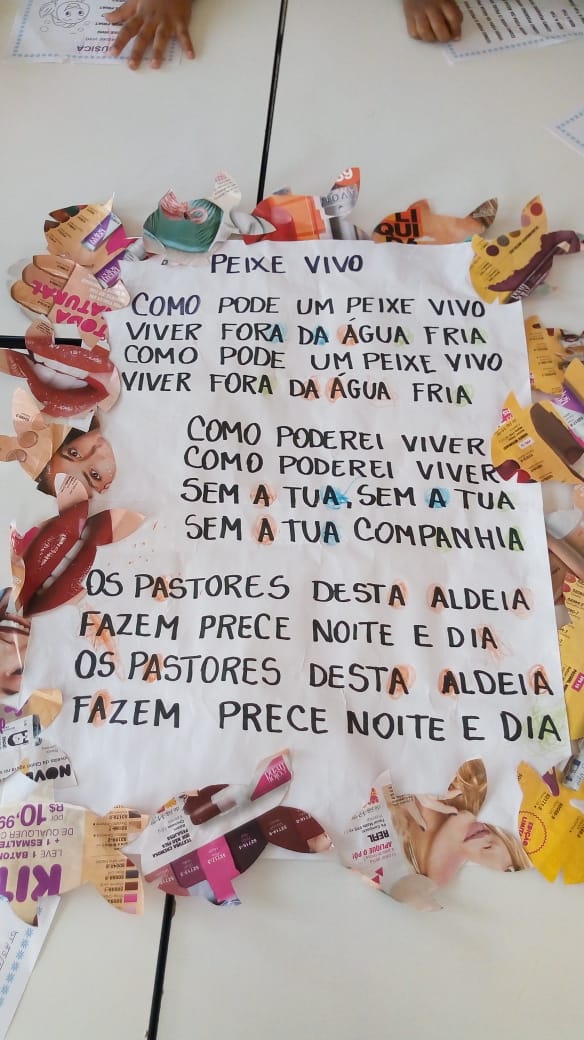 MUSICA
PEIXE VIVO
COMO PODE UM PEIXE VIVO
VIVER FORA DA ÁGUA FRIA
COMO PODE UM PEIXE VIVO
VIVER FORA DA ÁGUA FRIA
COMO PODEREI VIVER
COMO PODEREI VIVER
SEM A TUA, SEM A TUA
SEM A TUA COMPANHIA
OS PASTORES DESTA ALDEIA
FAZEM PRECE NOITE E DIA
OS PASTORES DESTA ALDEIA
FAZEM PRECE NOITE E DIA
LIQUIDA
TODA
NATURAL
NOVO
POR
R$ 10,99
+ 1 ESMALTE
LEVE 1 BATOM
KIT
REFIL
APLIQUE O PÓ